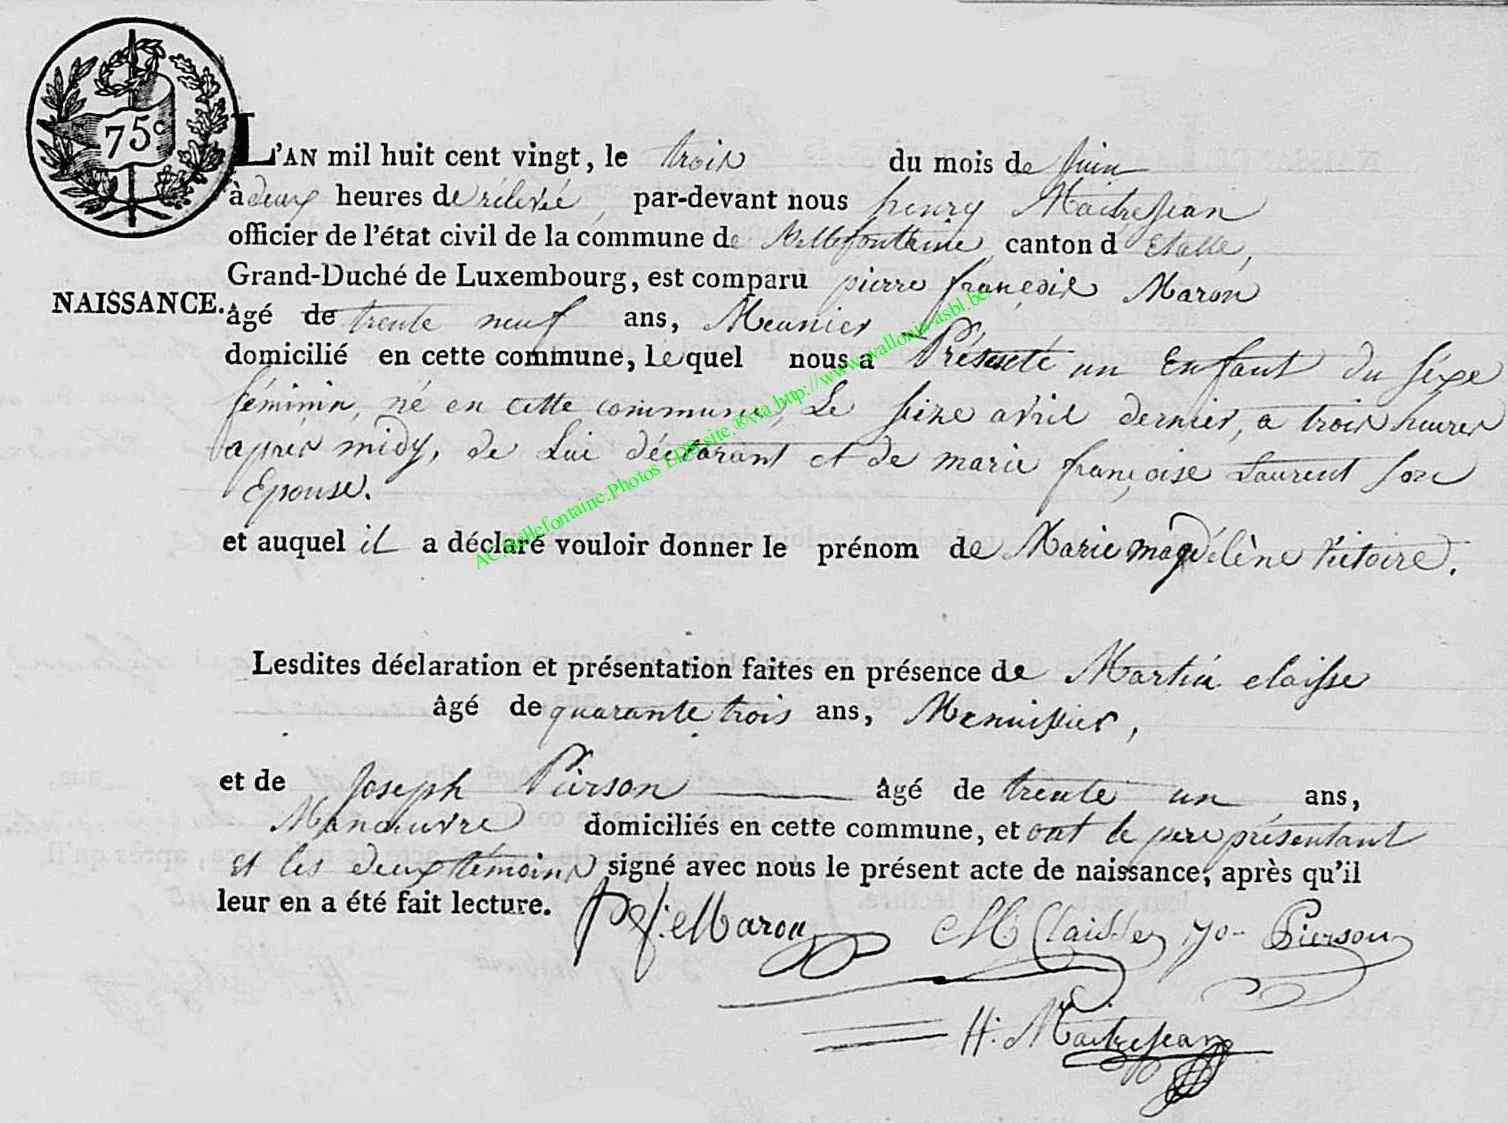 75c
L'AN mil huit cent vingt, le trois du mois de Juin
à deux heures de rélevée, par-devant nous henry Maitrejean
officier de l'état civil de la commune de Bellefontaine, canton d'Etalle,
Grand-Duché de Luxembourg, est comparu pierre françois Maron
NAISSANCE.
âgé de trente neuf ans, Meunier
domicilié en cette commune, lequel nous a Présenté un Enfant du séxe
féminin, né en cette commune, Le seize avril dernier, a trois heures
après midy, de Lui déclarant et de marie françoise Laurent son
Epouse.
et auquel il a déclaré vouloir donner le prénom de Marie magdélène Victoire.
AC Bellefontaine.Photos EDP site @ via http://www.wallonia-asbl.be
Lesdites déclaration et présentation faites en présence de Martin claisse
âgé de quarante trois ans, Menuissier,
et de Joseph Pierson âgé de trente un ans,
Manœuvre domiciliés en cette commune, et ont le pere présentant
et les deux témoins signé avec nous le présent acte de naissance, après qu'il
leur en a été fait lecture.
P f: Maron M Claisse Jo- Pierson
H: Maitrejean